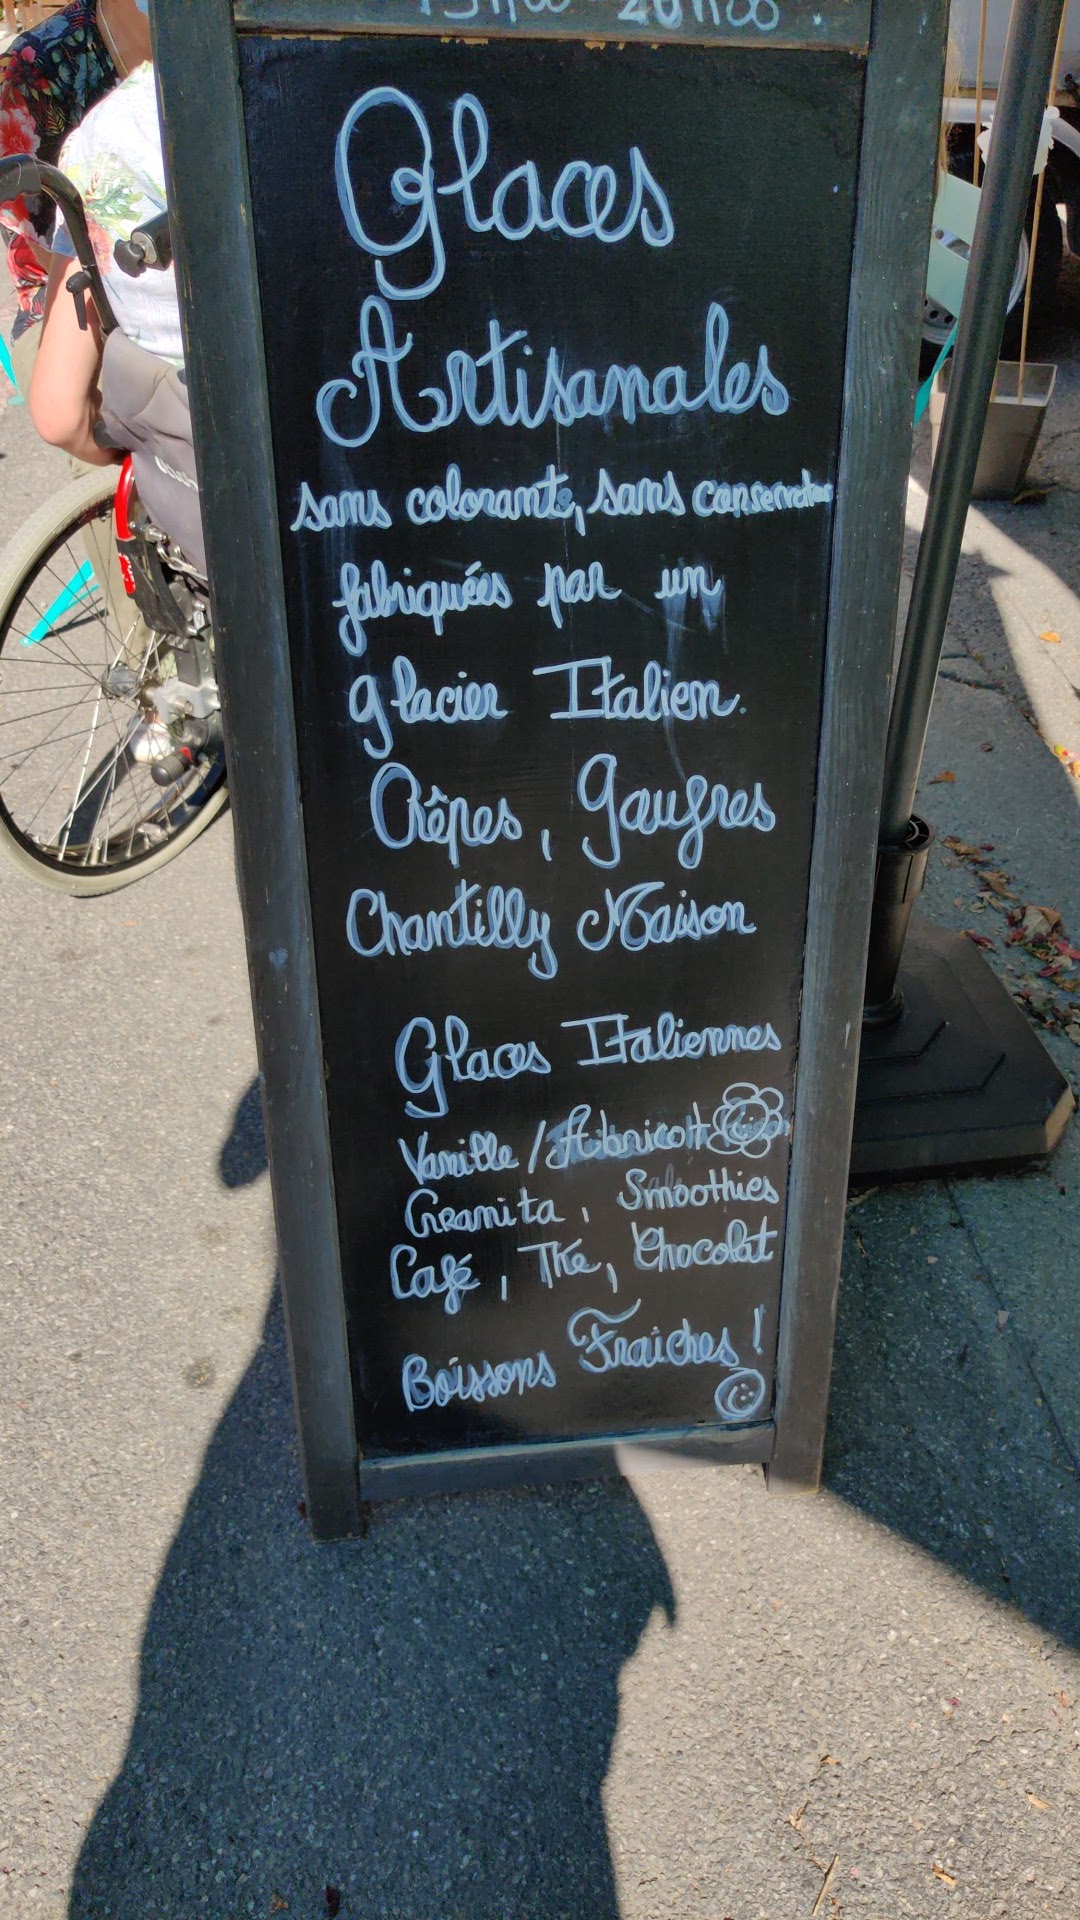 Glaces
Artisanales
sans colorant, sans conservateur
fabriquées par un
glacier Italien.
Crêpes, gaufres
Chantilly Maison
Glaces Italiennes
Vanille / Abricot
Granita, Smoothies
Café, Thé, Chocolat
Boissons Fraiches !